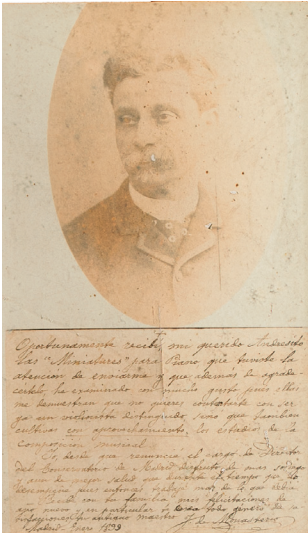 Oportunamente recibí, mi querido Andresito
las "Miniatures" para Piano que tuviste la
atención de enviarme y que además de agrade-
certelo, he examinado con mucho gusto pues ellas
me demuestran que no quieres contentarte con ser
un violinista distinguido, sino que tambien
cultivas con aprovechamiento los estudios de la
composición musical.
que renuncié el cargo de Director
del Conservatorio de Madrid después de
de mejor salud que durante el tiempo que lo
desempeñé
familia mis felicitaciones de
año nuevo, en particular
tu antiguo maestro J. de Monasterio
Madrid Enero 1899